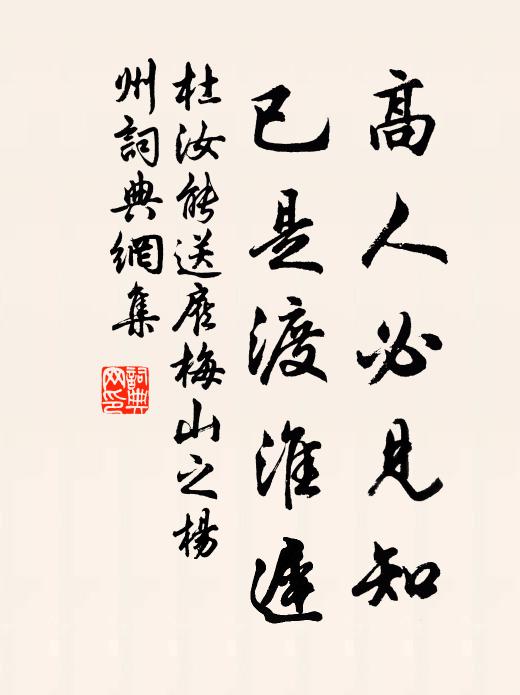 高人必見知
已是渡淮遲
杜汝能送雇梅山之楊
州詞典網集
詞典
网印